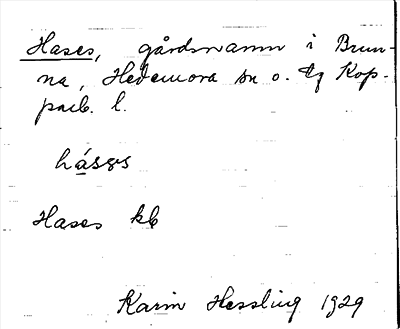 Hases, gårdsnamn i Brun-
na, Hedemora sn o. tg Kop-
parb. l.
hásəs
Hases kb
Karin Hessling 1929